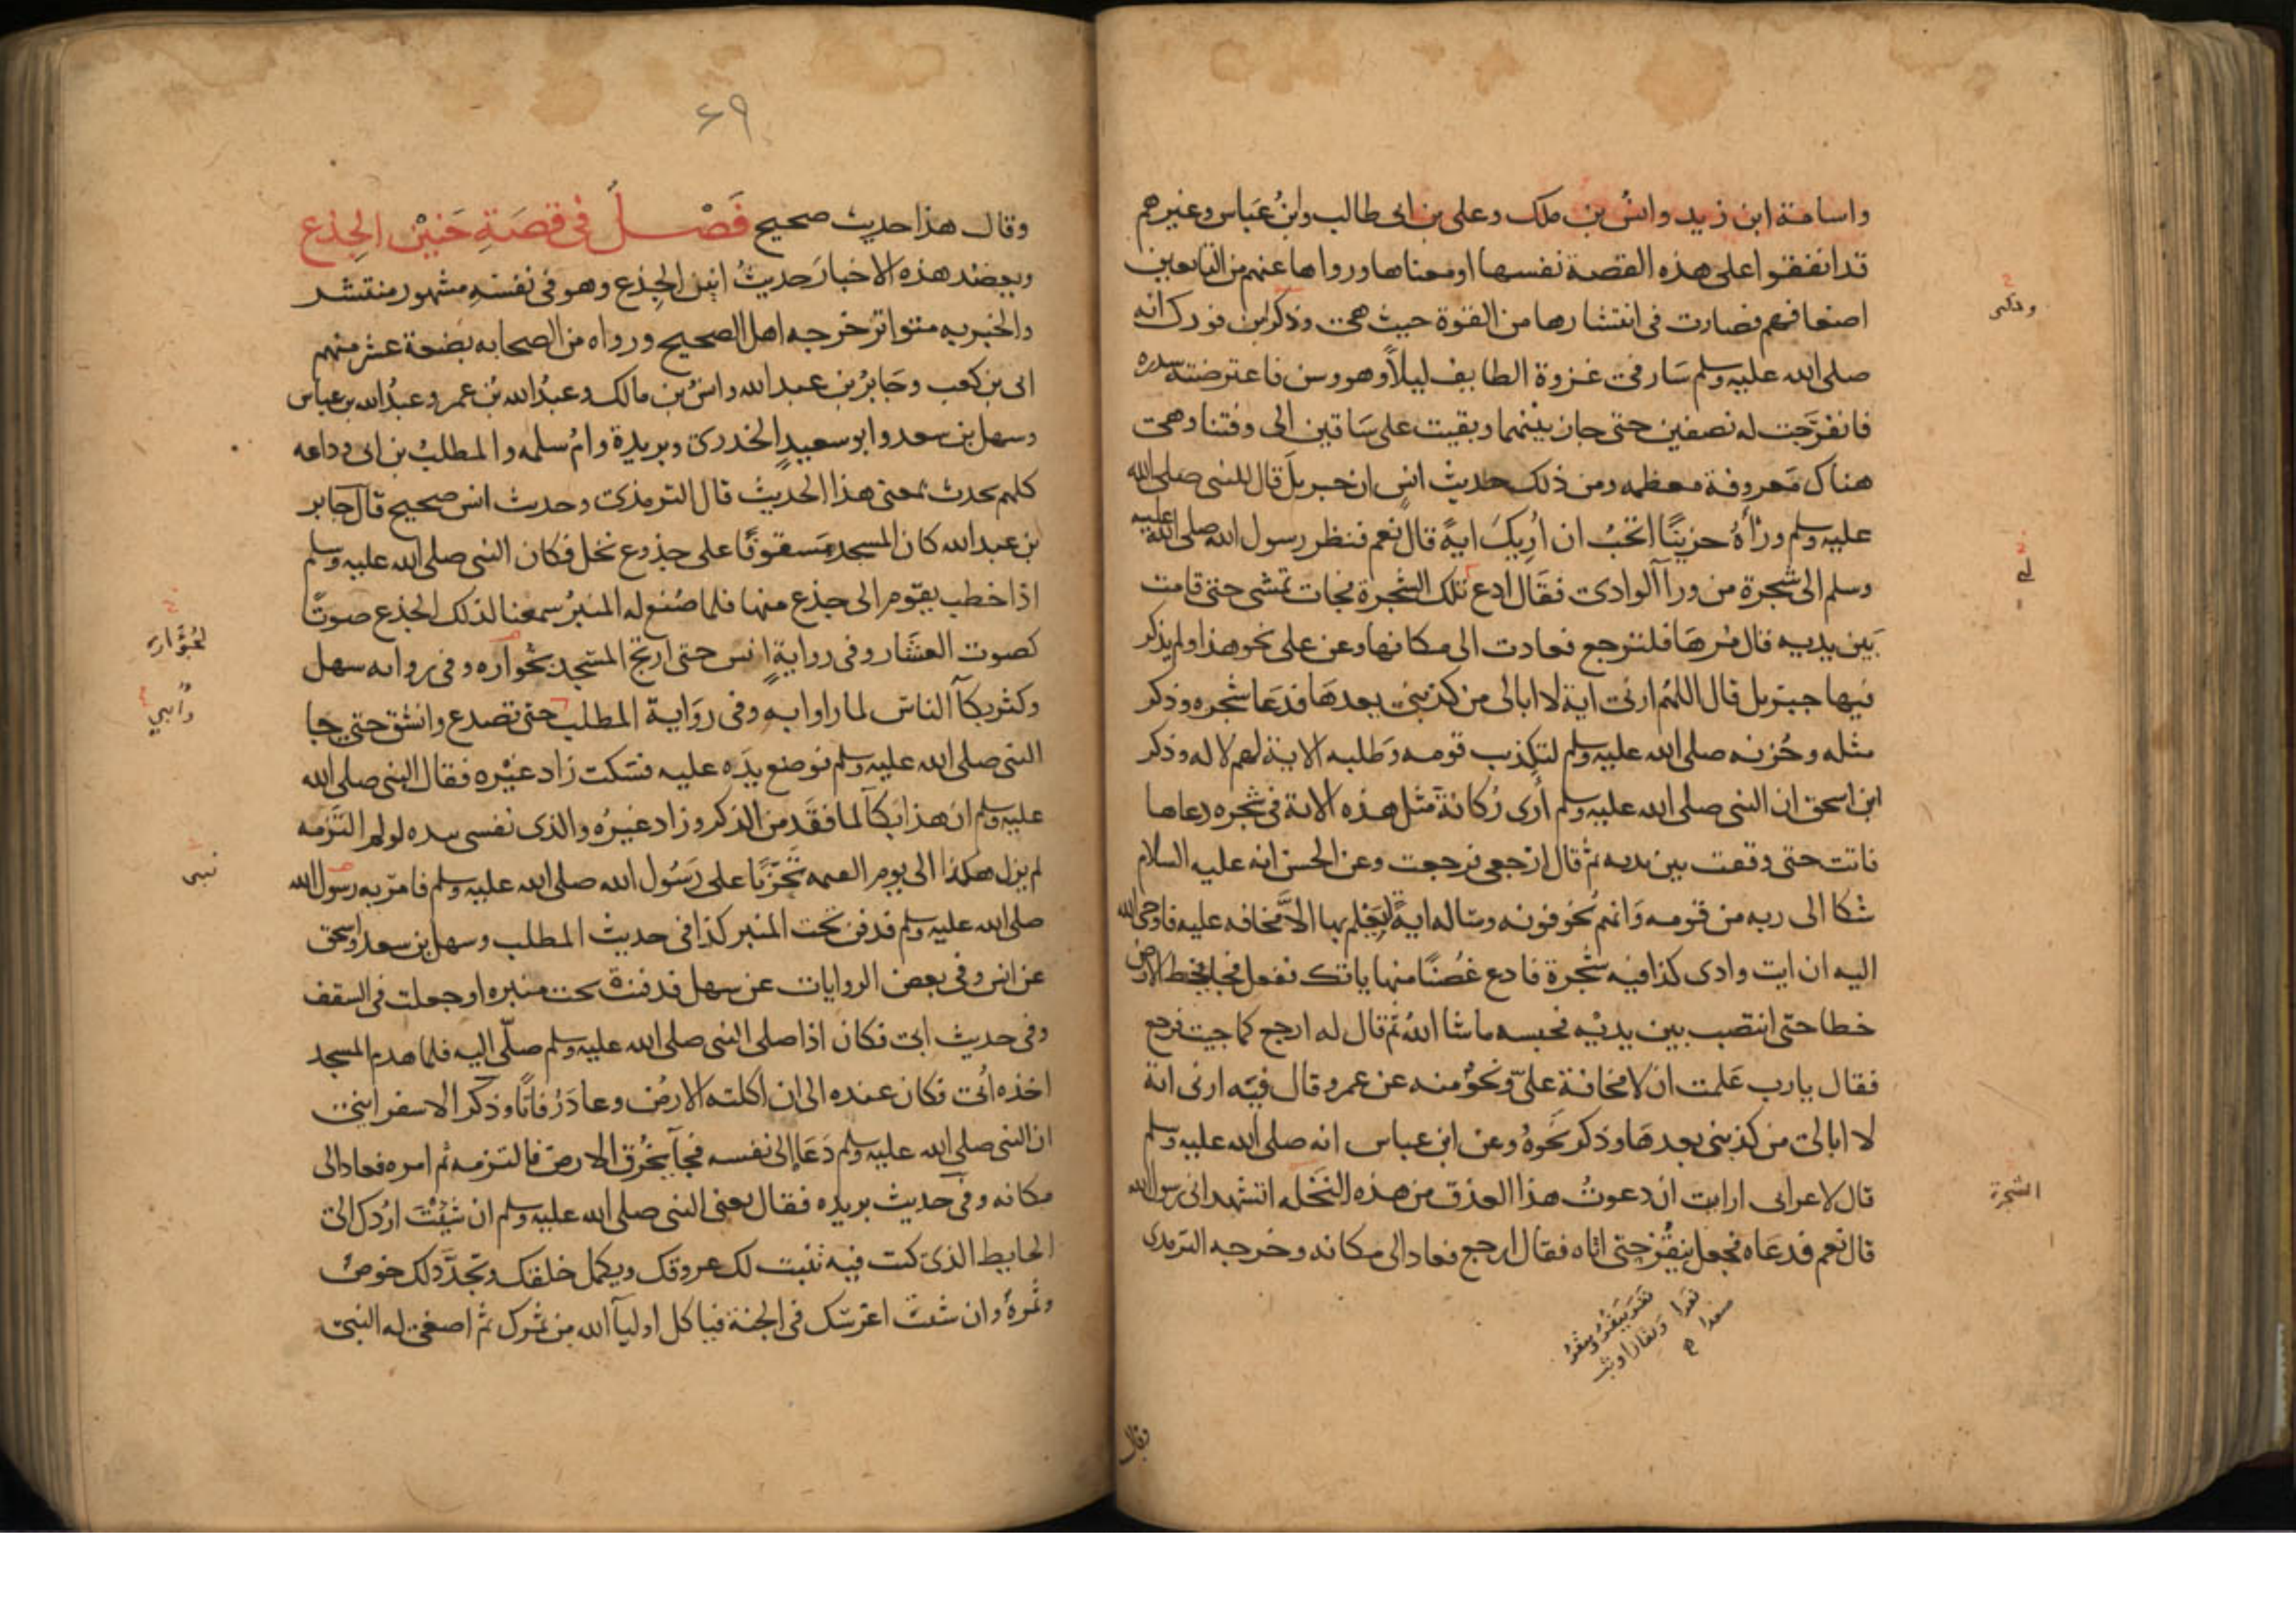 واسامة ابن زيد وانسُ بن ملك وعلى بن ابى طالب وابنُ عَباس وغيرهم
قد اتفقوا على هذه القصة نفسها او معناها ورواها عنهم من التابعين
اضعافهم فصارت فى انتشارها من القوة حيث هى وذكر ابن فورك انه
صلى الله عليه وسلم سَار فى غزوة الطايف ليلاً وهو وسن فاعترضته سدره
فانفرَجت له نصفين حتى جاز بينهما وبقيت على سَاقين الى وقتنا وهى
هناك مَعروفة معظمه ومن ذلك حديث انسٍ ان جبريلَ قال للنبى صلى الله
عليه وسلم ورأهُ حزينًا اتحبُ ان اُرِيكَ ايةً قال نعم فنظر رسول الله صلى الله عليه
وسلم الى شجرة من ورآ الوادى فقال ادع تلك الشجرة فجات تمشى حتى قامت
بَين يديه قال مُرهَا فلترجع فعادت الى مكانها وعن على نحو هذا ولم يذكر
فيها جبريل قال اللهُم ارنى اية لا ابالى من كذبنى بعدهَا فدعَا شجره وذكر
مثله وحُزنه صلى الله عليه وسلم لتكذيب قومه وَطلبه الاية لهم لا له وذكر
ابن اسحق ان النبى صلى الله عليه وسلم أرى رُكانَةَ مثل هذه الاية فى شجره دعاها
فاتت حتى وقفت بين يديه ثم قال ارْجعى فرجعت وعن الحسن انه عليه السلام
شكا الى ربه من قومه وَانهم يُخوفونه وساله ايةً لِيَعْلم بها الاَّ مخافه عليه فاوحى الله
اليه ان ايت وادى كذا فيه شجرة فادع غُصْنًا منها ياتك ففعل فجا يخط الارض
خطا حتى انتصب بين يديْه فحبسه ماشا اللهُ ثم قال له ارجع كما جيت فرجع
فقال يارب عَلمت ان لا مخافة علىّ ونحوٌ منه عن عمر وقال فيْه ارنى اية
لا ابالى من كذبنى بعدهَا وذكر نَحوهُ وعن ابن عباس انه صلى الله عليه وسلم
قال لاعرابى ارايت ان دعوتُ هذا العذق من هذه النخَله اتشهد انى رسول الله
قال نعم فدعَاه فجعل ينقُز حتى اتاه فقال ارجع فعاد الى مكانه وخرجه الترمدى
الشجرة
فقال
٦٩
وقال هذا حديث صحيح فَصْلٌ فى قصَةِ حَنِيْن الجِذع
ويعضد هذه الاخبارَ حديثُ انين الجِذع وهو فى نفسَه مشهور منتشر
والخبر به متواتر خرجه اهل الصحيح ورواه من الصحابه بضعة عشر منهم
ابى بن كعب وجَابرُ بن عبد الله وانسُ بن مالك وعبدُ الله بْن عمر وعبدُ الله بن عباس
وسهل بن سعد وابو سعيدٍ الخدرى وبريدة وامُ سلمه والمطلبُ بن ابى وداعه
كلهم يحدث بمعنى هذا الحديث قال الترمذى وحدث انس صحيح قال جابر
بن عبد الله كان المسجد مَسقوفًا على جذوع نخل فكان النبى صلى الله عليه وسلم
اذا خطب يقوم الى جذع منها فلما صُنع له المنبرُ سمعنا لذلك الجذع صوتًا
كصوت العشَار وفى روايةٍ انس حتى ارتج المسْجد بخواره وفى روايه سهل
وكثر بكآ الناسَ لما راوا به وفى روَاية المطلب حتى تصدع وانشق حتى جا
النبى صلى الله عليه وسلم فوضع يدَه عليه فسَكت زاد غيْره فقال النبى صلى الله
عليه وسلم ان هذا بَكآ لما فقَد من الذكر وزاد غيرُه والذى نفسى بيده لو لم التَزمه
لم يزل هكذا الى يوم القيمه تَحَزّنًا على رَسُول الله صلى الله عليه وسلم فامر به رسول الله
صلى الله عليه وسلم فدفن تحت المنبر كذا فى حديث المطلب وسهل بن سعد واسحق
عن انس وفى بعض الروايات عن سهل فدفنتْ تحت منبره او جعلت فى السقف
وفى حديث ابى فكان اذا صلى النبى صلى الله عليه وسلم صلّى اليه فلما هدم المسجد
اخذه اُبى فكان عنده الى ان اكلته الارضْ وعادَ رُفاتًا وذكر الاسفراينى
ان النبى صلى الله عليه وسلم دَعَا الى نفسه فجآ يَخْرُق الارض فالتزمه ثم امره فعاد الى
مكانه وفى حديث بريده فقال يعنى النبى صلى الله عليه وسلم ان شيْتَ اردك الى
الحايط الذى كنت فيه تنبت لك عروقك ويكمل خلقك وتجدَّد لك خوصٌ
وثمرةٌ وان شئت اغرسَك فى الجنة فياكل اوليآ الله من ثمرك ثم اصغى له النبى
نبى